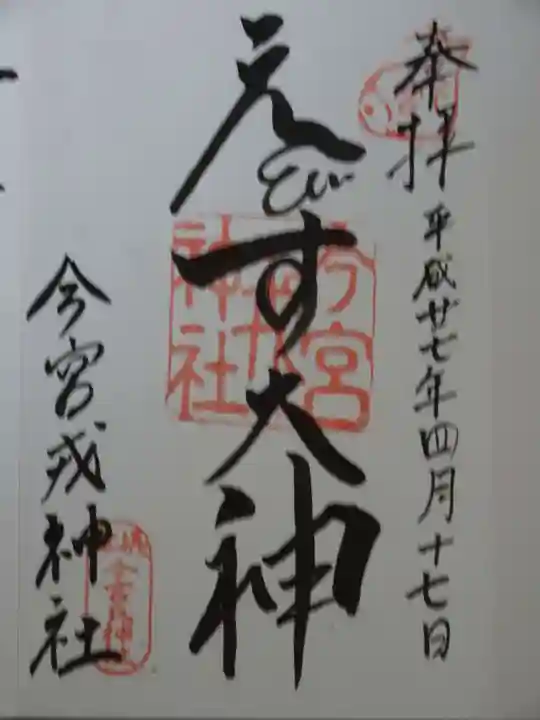 奉拝
平成廿七年四月十七日
えびす大神
今宮戎神社
今宮戎神社